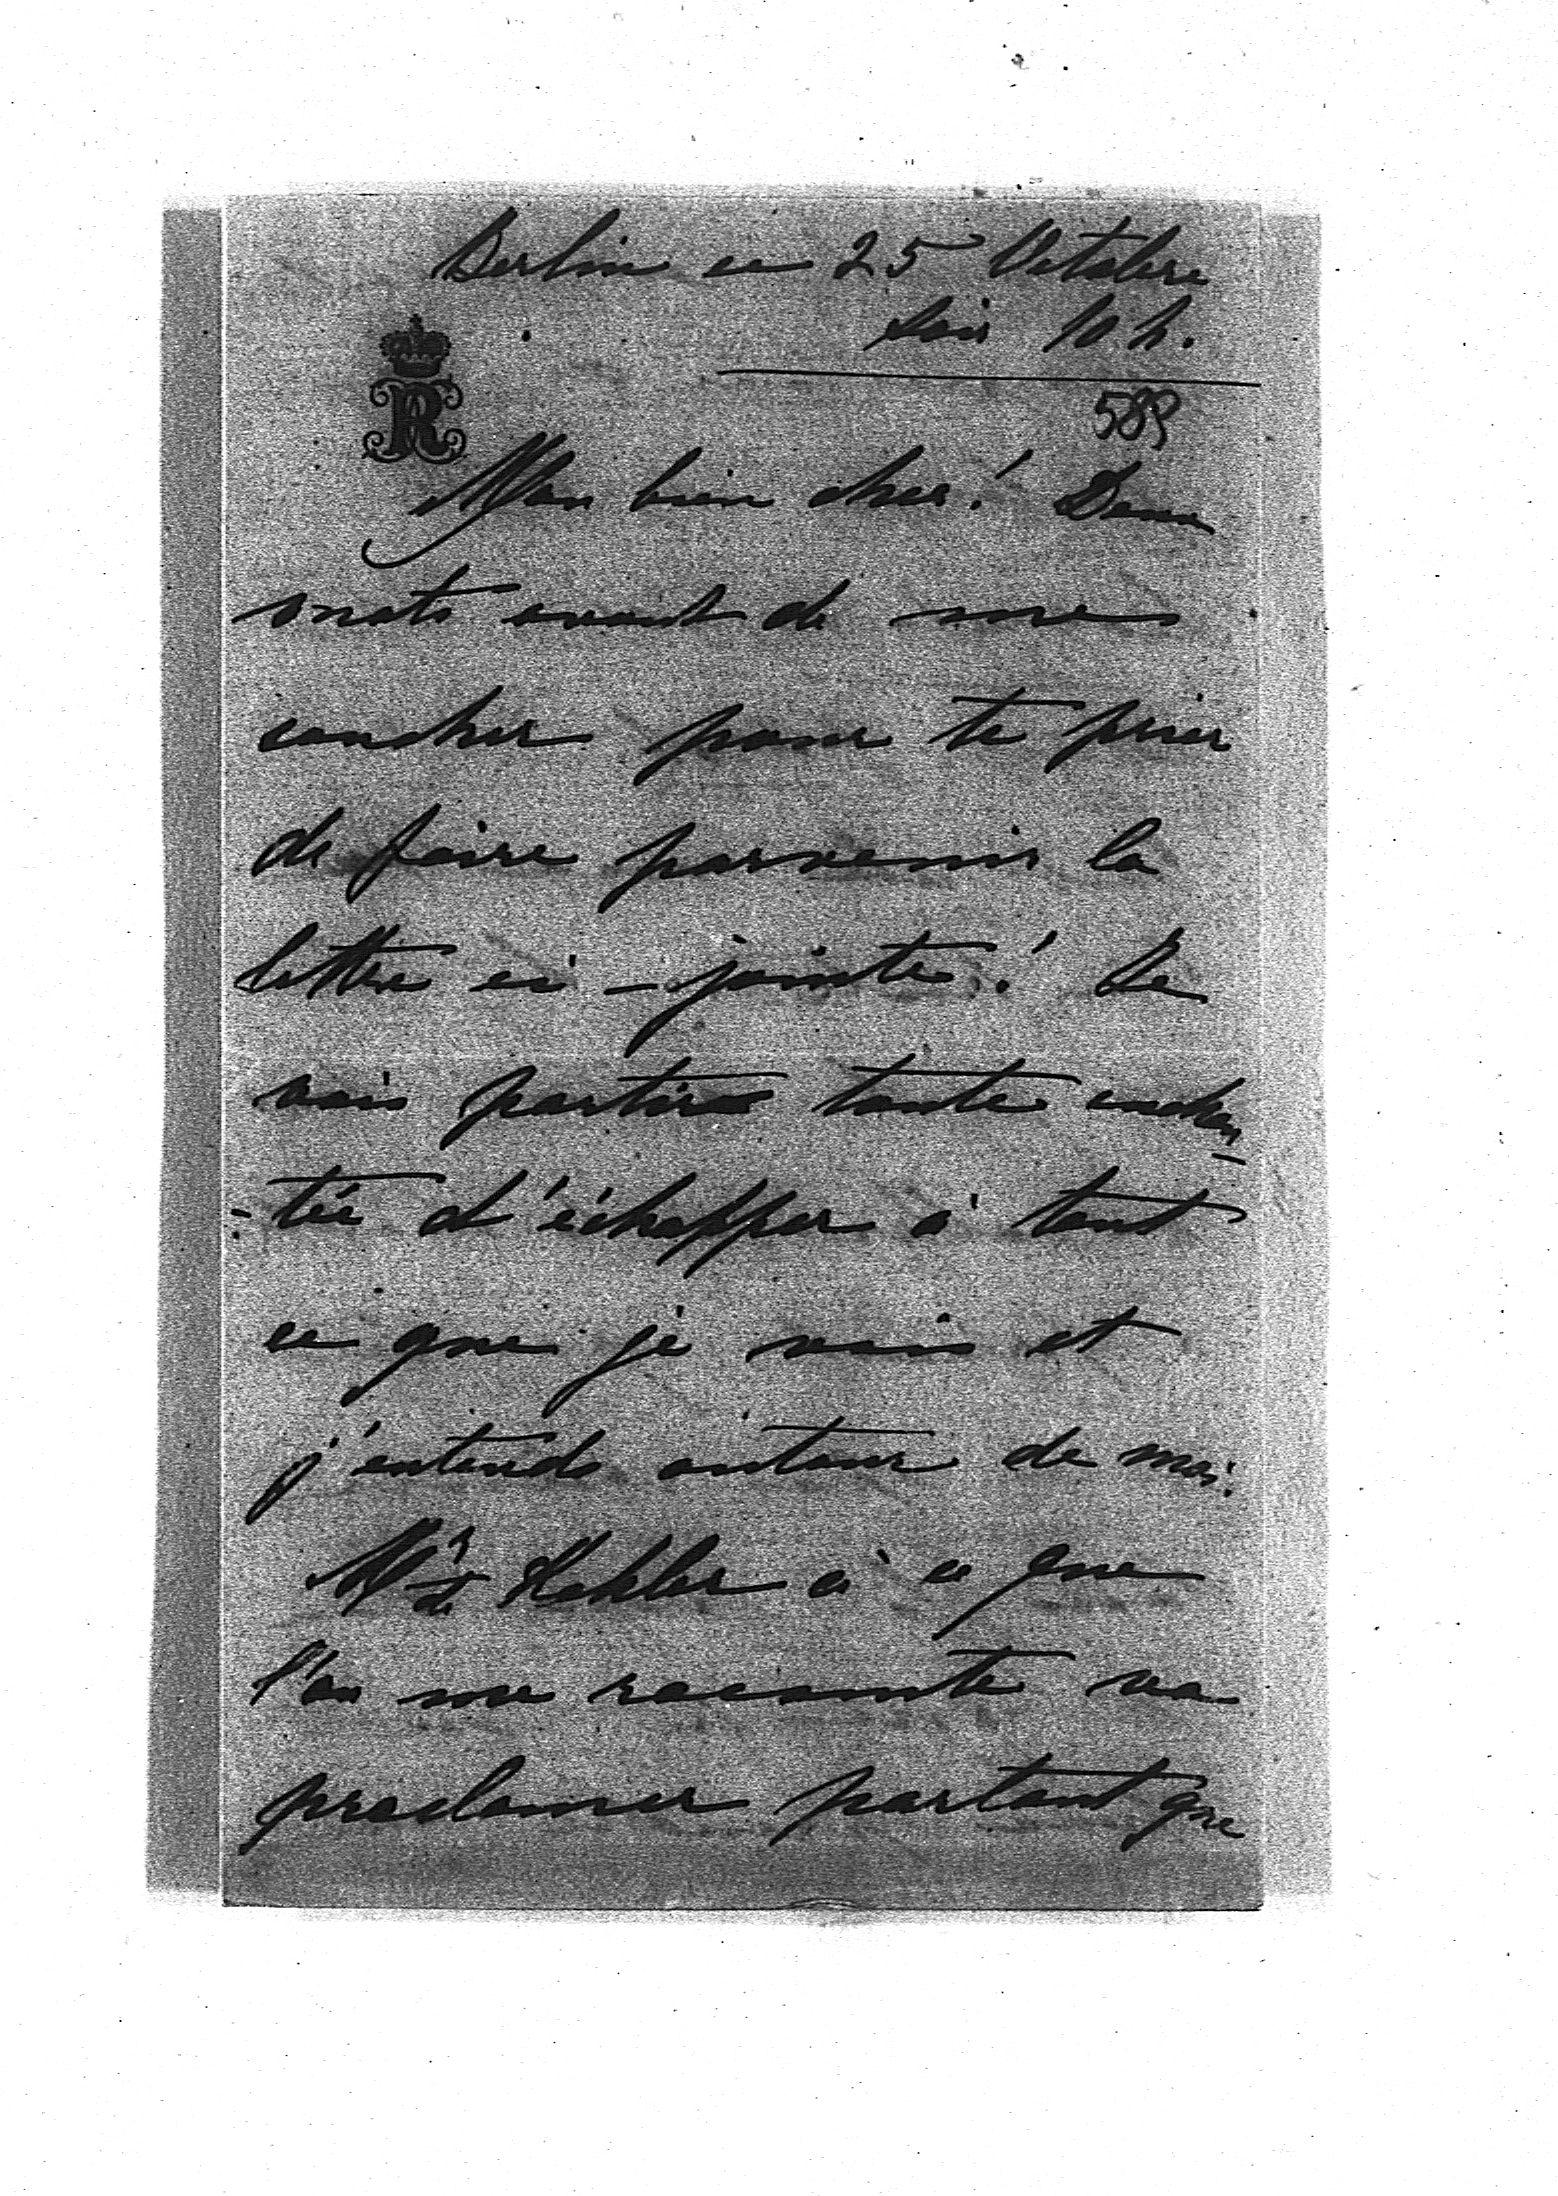 Berlin ce 25 Octobre
soir 10 h.
589
R
Mon bien cher! Deux
mots avant de me
coucher pour te prier
de faire parvenir la
lettre ci-jointe! Je
vais partir toute enchan-
-tée d'échapper à tout
ce que je vois et
j'entends autour de moi.
Mr de Kehler à ce que
l'on me raconte va
proclamer partout que